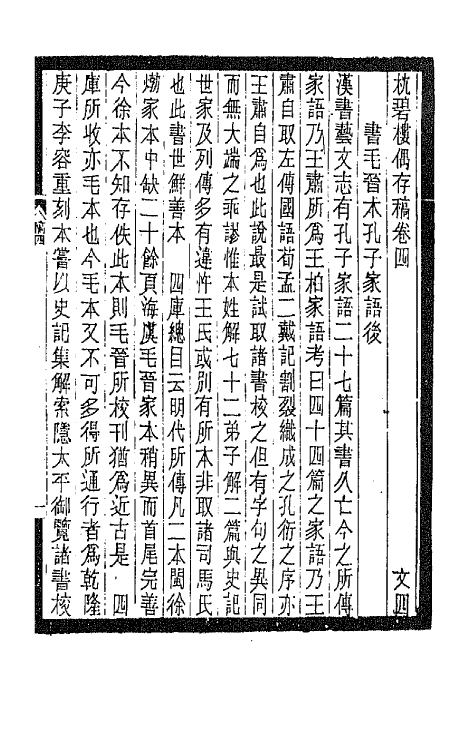 枕碧樓偶存稿卷四　　文四
書毛晉本孔子家語後
漢書藝文志有孔子家語二十七篇其書久亡今之所傳
家語乃王肅所爲王柏家語考曰四十四篇之家語乃王
肅自取左傳國語荀孟二戴記割裂織成之孔衍之序亦
王肅自爲也此說最是試取諸書校之但有字句之異同
而無大端之乖謬惟本姓解七十二弟子解二篇與史記
世家及列傳多有違忤王氏或別有所本非取諸司馬氏
也此書世鮮善本　四庫總目云明代所傳凡二本閩徐
㶿家本中缺二十餘頁海虞毛晉家本稍異而首尾完善
今徐本不知存佚此本則毛晉所校刊猶爲近古是　四
庫所收亦毛本也今毛本又不可多得所通行者爲乾隆
庚子李容重刻本嘗以史記集解索隱太平御覽諸書校